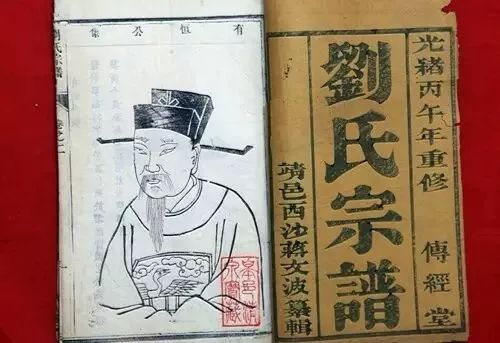 光緒丙午年重修
傳經堂
劉氏宗譜
靖邑西沙蔣文波纂輯
有恒公
氏宗譜